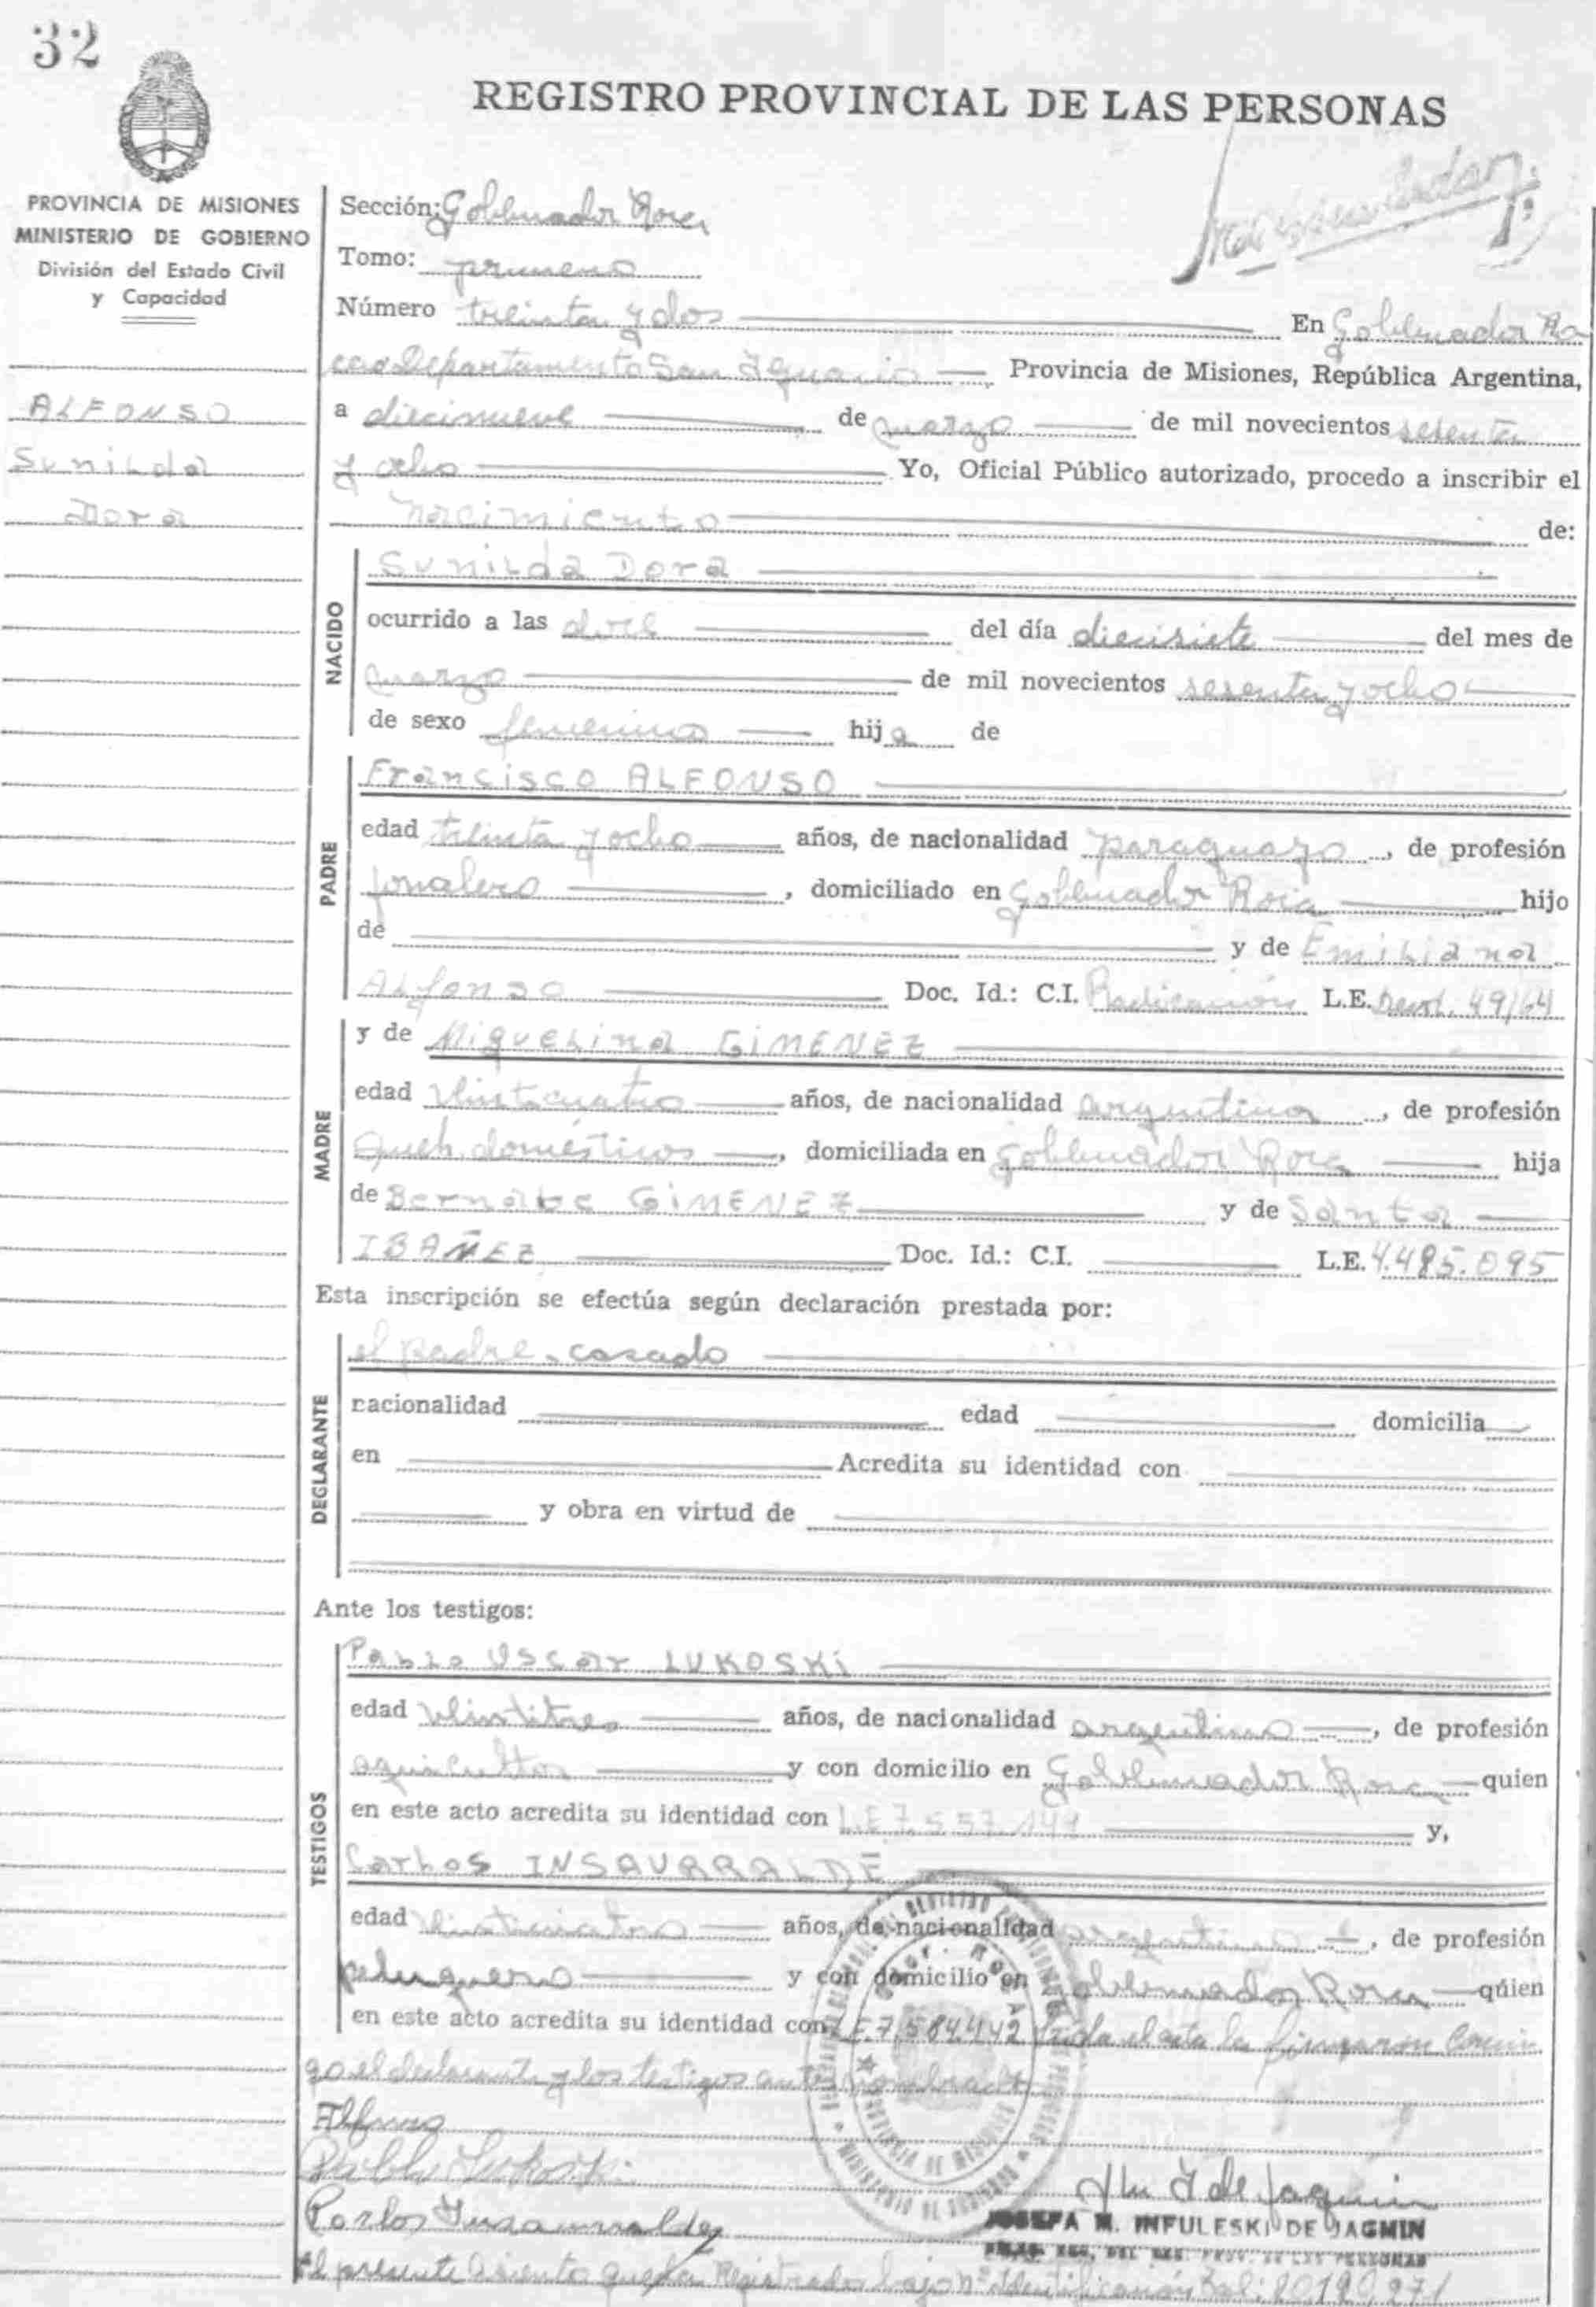 32
REGISTRO PROVINCIAL DE LAS PERSONAS
PROVINCIA DE MISIONES
MINISTERIO DE GOBIERNO
División del Estado Civil
y Capacidad
ALFONSO
Sunilda
Dora
Sección: Gobernador Roca
Tomo: primero
Número treinta y dos En Gobernador Ro
ca Departamento San Ignacio Provincia de Misiones, República Argentina,
a diecinueve de marzo de mil novecientos sesenta
y ocho Yo, Oficial Público autorizado, procedo a inscribir el
nacimiento de:
NACIDO
Sunilda Dora
ocurrido a las doce del día diecisiete del mes de
marzo de mil novecientos sesenta y ocho
de sexo femenino hija de
PADRE
Francisco ALFONSO
edad treinta y ocho años, de nacionalidad paraguayo, de profesión
jornalero, domiciliado en Gobernador Roca hijo
de y de Emiliana
Alfonso Doc. Id.: C.I. Radicación L.E. 49/64
MADRE
y de Miguelina GIMENEZ
edad veinticuatro años, de nacionalidad argentina, de profesión
Queh. domésticos, domiciliada en Gobernador Roca hija
de Bernabe GIMENEZ y de Santa
IBAÑEZ Doc. Id.: C.I. L.E. 4.485.095
Esta inscripción se efectúa según declaración prestada por:
DECLARANTE
el padre, casado
nacionalidad edad domicilia
en Acredita su identidad con
y obra en virtud de
Ante los testigos:
TESTIGOS
Pablo Oscar LUKOSKI
edad veintitres años, de nacionalidad argentino, de profesión
agricultor y con domicilio en Gobernador Roca quien
en este acto acredita su identidad con L.E 7.557.144 y,
Carlos INSAURRALDE
edad veinticuatro años, de nacionalidad argentino, de profesión
peluquero y con domicilio en Gobernador Roca quien
en este acto acredita su identidad con L.E. 7.584.442 Leida el acta la firmaron conmi
go el declarante y los testigos antes nombrados
Alfonso
Pablo Lukoski
Carlos Insaurralde
JOSEFA M. INFULESKI DE JAGMIN
El presente asiento queda Registrado bajo nº identificación 20.190.271